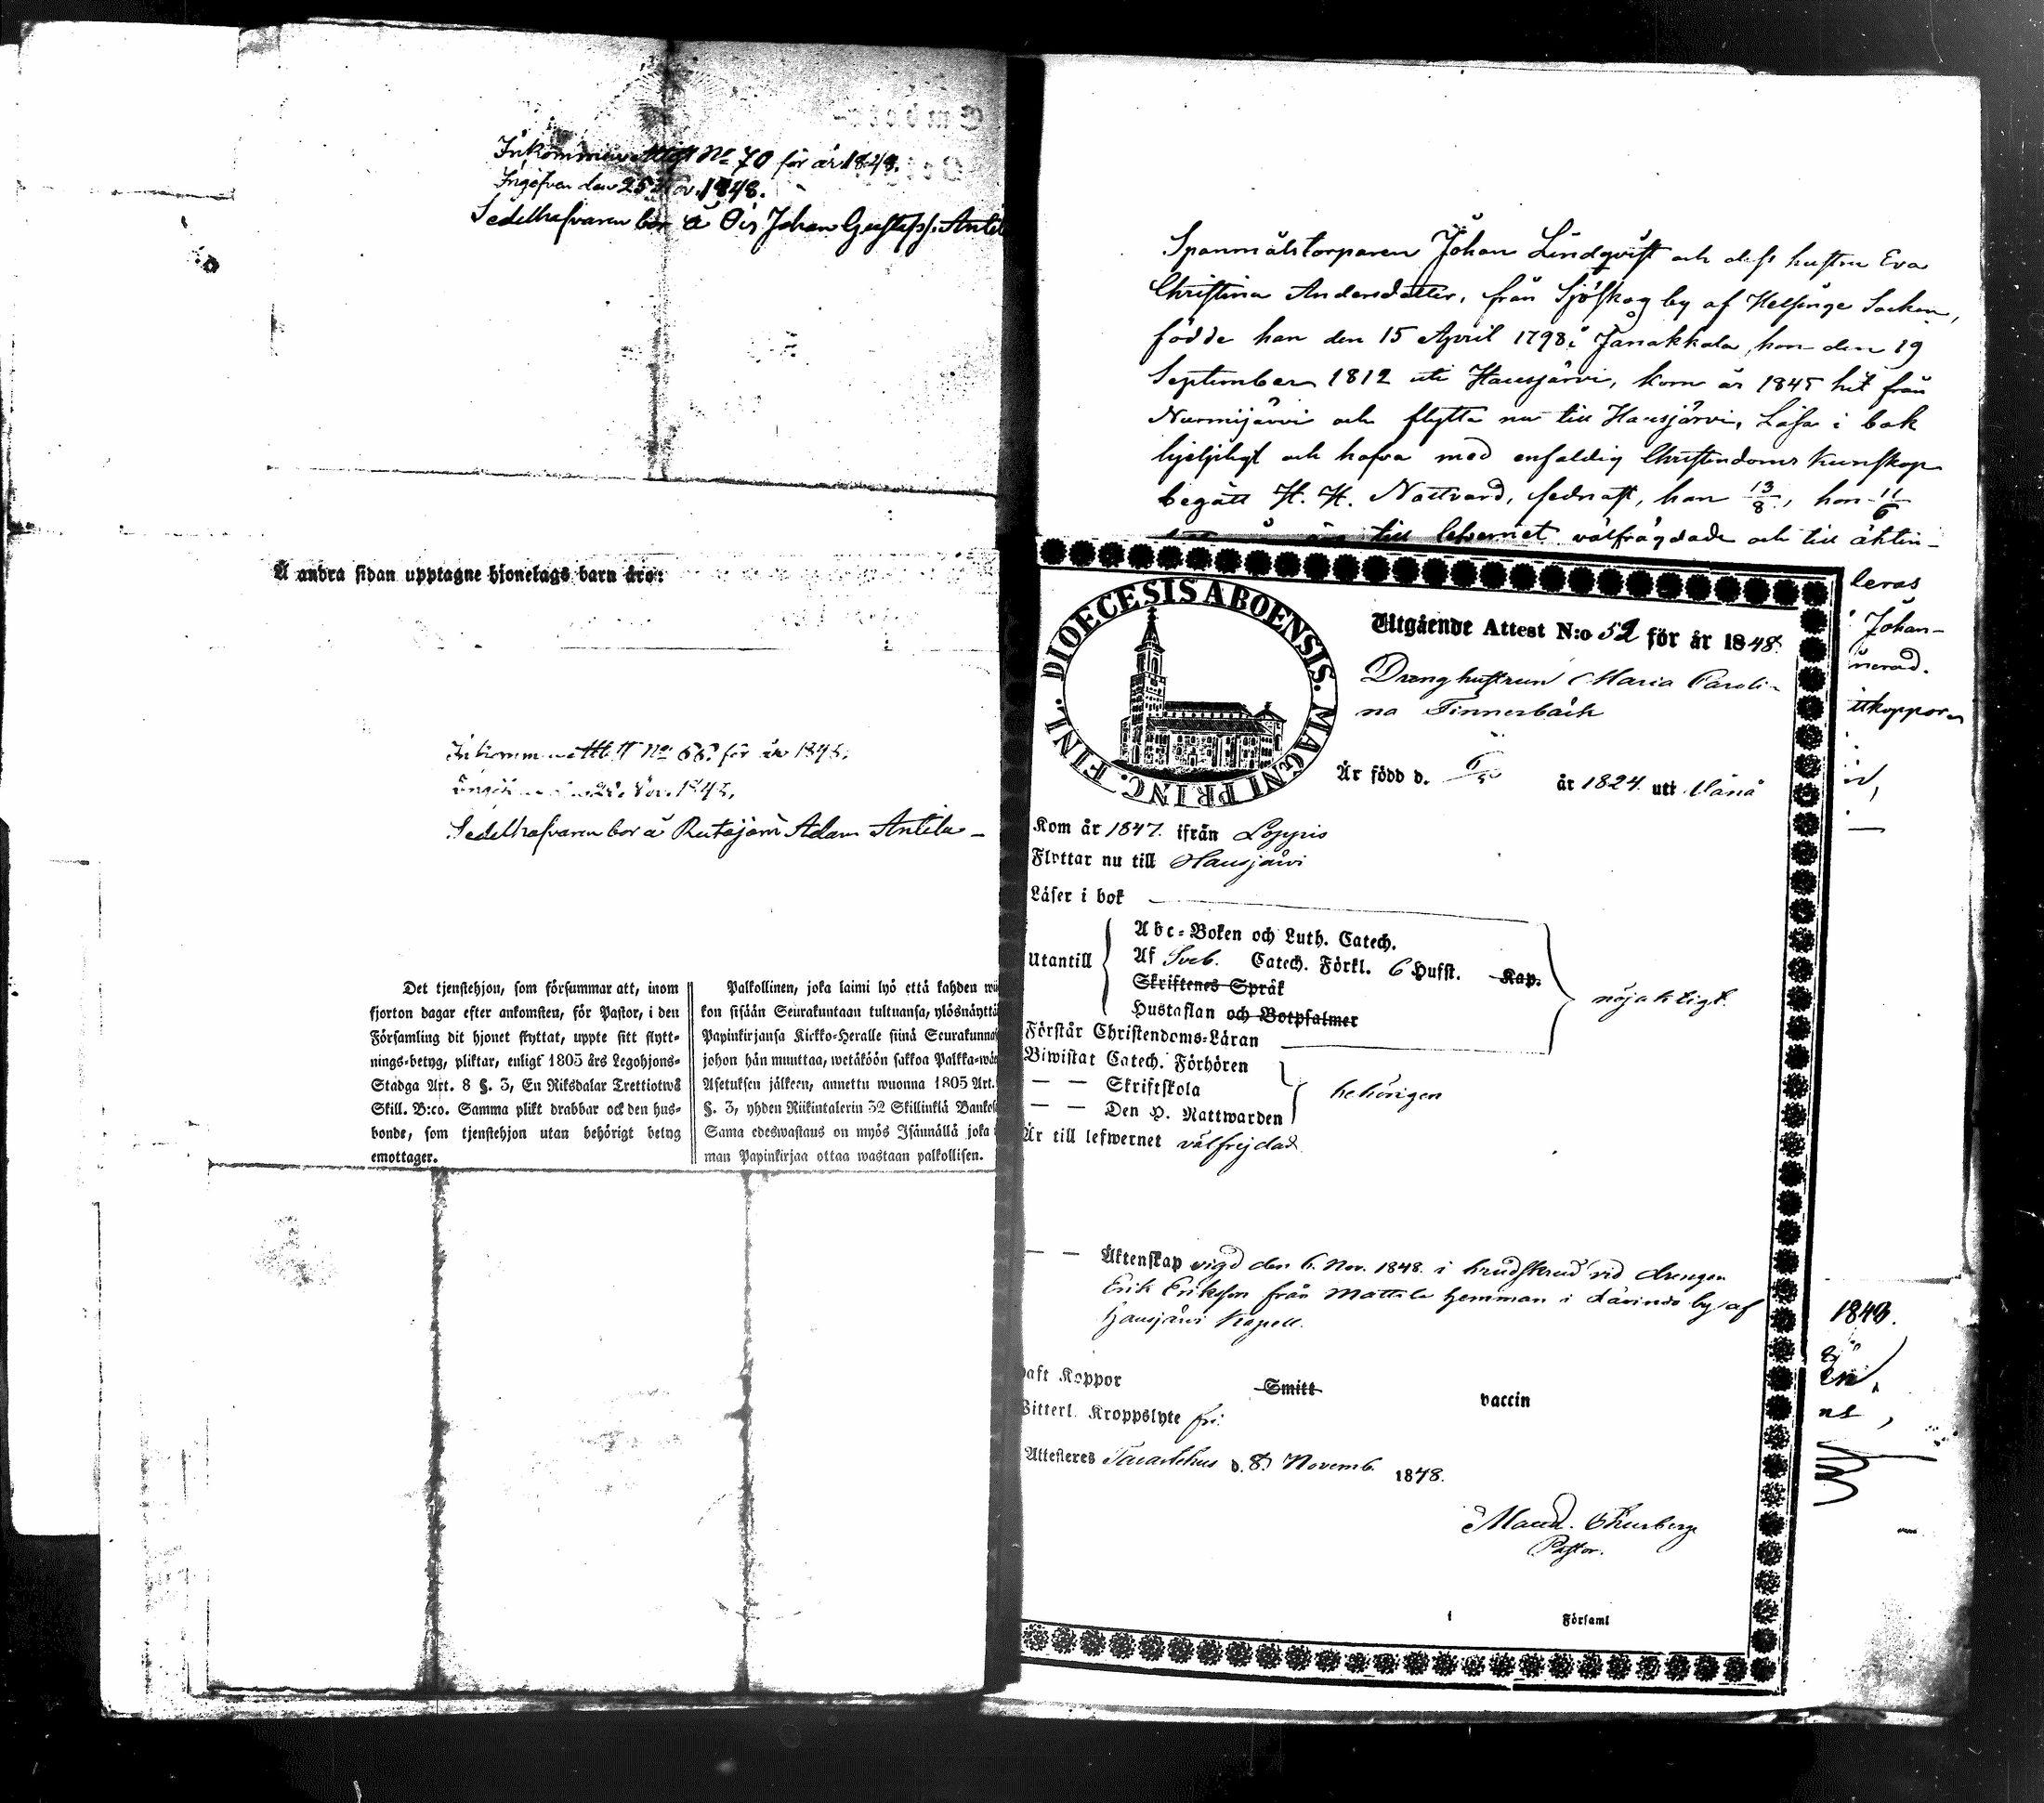 Inkommen attest No 70 för år 1848.
Ingifven den 25 Nov. 1848.
Sedelhafvaren bor å Ois Johan Gustafss. Antil
Å andra sidan upptagne hjonelags barn äro:
No 66 för år 1848.
Sedelhafvaren bor å Rutajärvi Adam Antila
Det tjenstehjon, som försummar att, inom
fjorton dagar efter ankomsten, för Pastor, i den
Församling dit hjonet flyttat, uppte sitt flytt-
nings-betyg, pliktar, enligt 1805 års Legohjons-
Stadga Art. 8 §. 3, En Riksdalar Trettiotwå
Skill. B:co. Samma plikt drabbar ock den hus-
bonde, som tjenstehjon utan behörigt betyg
emottager.
Palkollinen, joka laimi lyö että kahden wii
kon sisään Seurakuntaan tultuansa, ylösnäyttä
Papinkirjansa Kirkko-Heralle siinä Seurakunnas
johon hän muuttaa, wetäköön sakkoa Palkka-wä
Asetuksen jälkeen, annettu wuonna 1805 Art.
§. 3, yhden Riikintalerin 32 Skillinkiä Banko
Sama edeswastaus on myös Isännällä joka i
man Papinkirjaa ottaa wastaan palkollisen.
Spanmålstorparen Johan Lindqvist och dess hustru Eva
Christina Andersdotter, från Sjöskog by af Helsinge Socken,
födde han den 15 April 1798 i Janakkala, hon den 19
September 1812 uti Hausjärvi, kom år 1845 hit från
Nurmijärvi och flytta nu till Hausjärvi, Läsa i bok
hjelpligt och hafva med enfaldig Christendoms kunskap
begått H. H. Nattvard, sednast, han 13/8, hon 11/6
till lefvernet välfrägdade och till äkten-
leras
Johan-
nerad.
ttkoppor
1848.
DIOECESIS ABOENSIS. MAGNI PRINC. FINL.
Utgående Attest N:o 52 för år 1848.
Drenghustrun Maria Caroli-
na Tinnerbäck
Är född d. år 1824. uti Vånå
Kom år 1847. ifrån Loppis
Flyttar nu till Hausjärvi
Läser i bok
Utantill
Abc-Boken och Luth. Catech.
Af Sveb. Catech. Förkl. 6 Hufst. Kap.
Skriftenes Språk
Hustaflan och Botpsalmer
nöjaktigt.
Förstår Christendoms-Läran
Biwistat Catech. Förhören
— — Skriftskola
— — Den H. Nattwarden
behörigen
Är till lefwernet välfrejdad.
— — Äktenskap vigd den 6. Nov. 1848. i brudskrud vid drengen
Erik Eriksson från Mattila hemman i by af
Hausjärvi Kapell.
haft Koppor Smitt vaccin
Witterl. Kroppslyte fri.
Attesteres Tavastehus d. 8. Novemb. 1848.
Pastor.
i Församl